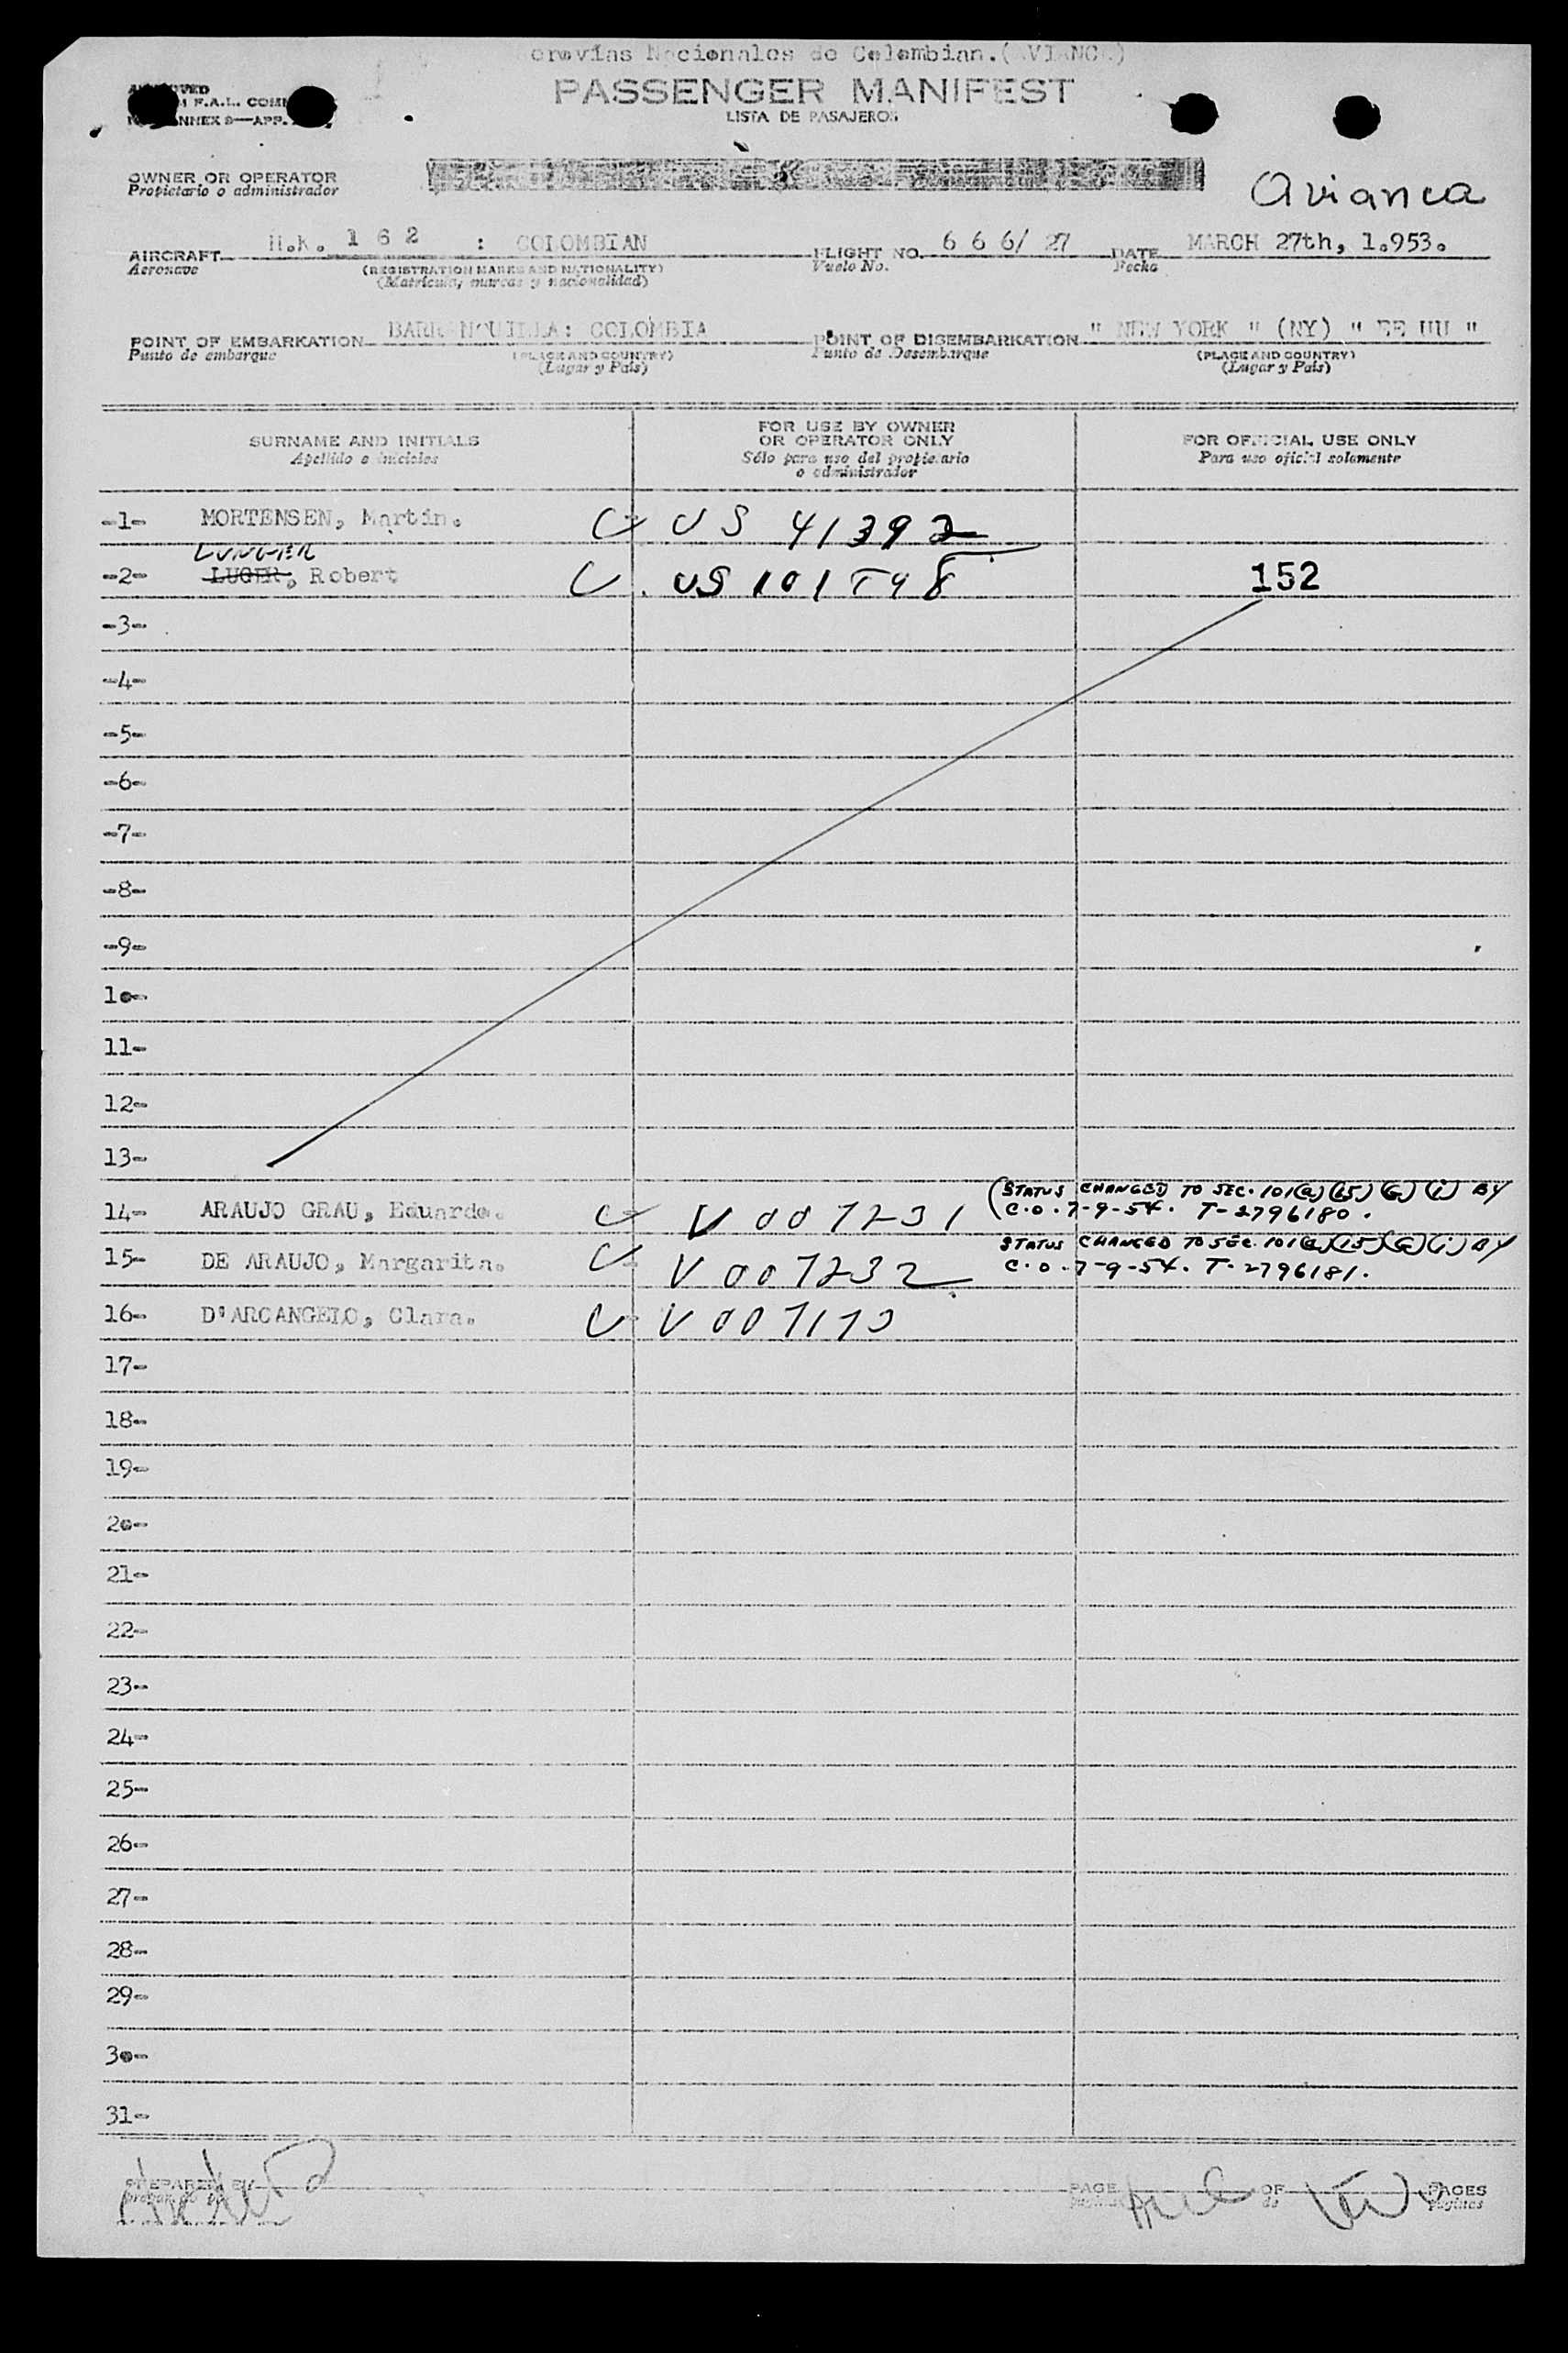 Nacionales de Colombian.(AVIANCA)
PASSENGER MANIFEST
LISTA DE PASAJEROS
F.A.L.
ANNEX 9—APP.
OWNER OR OPERATOR
Propietario o administrador
Avianca
AIRCRAFT H.K. 1 6 2 : COLOMBIAN FLIGHT NO. 6 6 6/ 27 DATE MARCH 27th, 1.953.
Aeronave (REGISTRATION MARKS AND NATIONALITY) Vuelo No. Fecha
(Matrícula, marcas y nacionalidad)
POINT OF EMBARKATION BARRANQUILLA: COLOMBIA POINT OF DISEMBARKATION " NEW YORK " (NY) " EE UU "
Punto de embarque (PLACE AND COUNTRY) Punto de Desembarque (PLACE AND COUNTRY)
(Lugar y País) (Lugar y País)
SURNAME AND INITIALS
Apellido e iniciales
FOR USE BY OWNER
OR OPERATOR ONLY
Sólo para uso del propietario
o administrador
FOR OFFICIAL USE ONLY
Para uso oficial solamente
-1- MORTENSEN, Martin. US 41392
LUNGER
-2- LUGER, Robert US 101598 152
-3-
-4-
-5-
-6-
-7-
-8-
-9-
10-
11-
12-
13-
14- ARAUJO GRAU, Eduardo. V 007231 (STATUS CHANGED TO SEC. 101(a)(15)(G)(i) BY
C.O. 7-9-54. T-2796180.
15- DE ARAUJO, Margarita. V 007232 STATUS CHANGED TO SEC. 101(a)(15)(G)(i) BY
C.O. 7-9-54. T-2796181.
16- D'ARCANGELO, Clara. V 007113
17-
18-
19-
20-
21-
22-
23-
24-
25-
26-
27-
28-
29-
30-
31-
PREPARED BY PAGE OF PAGES
de páginas